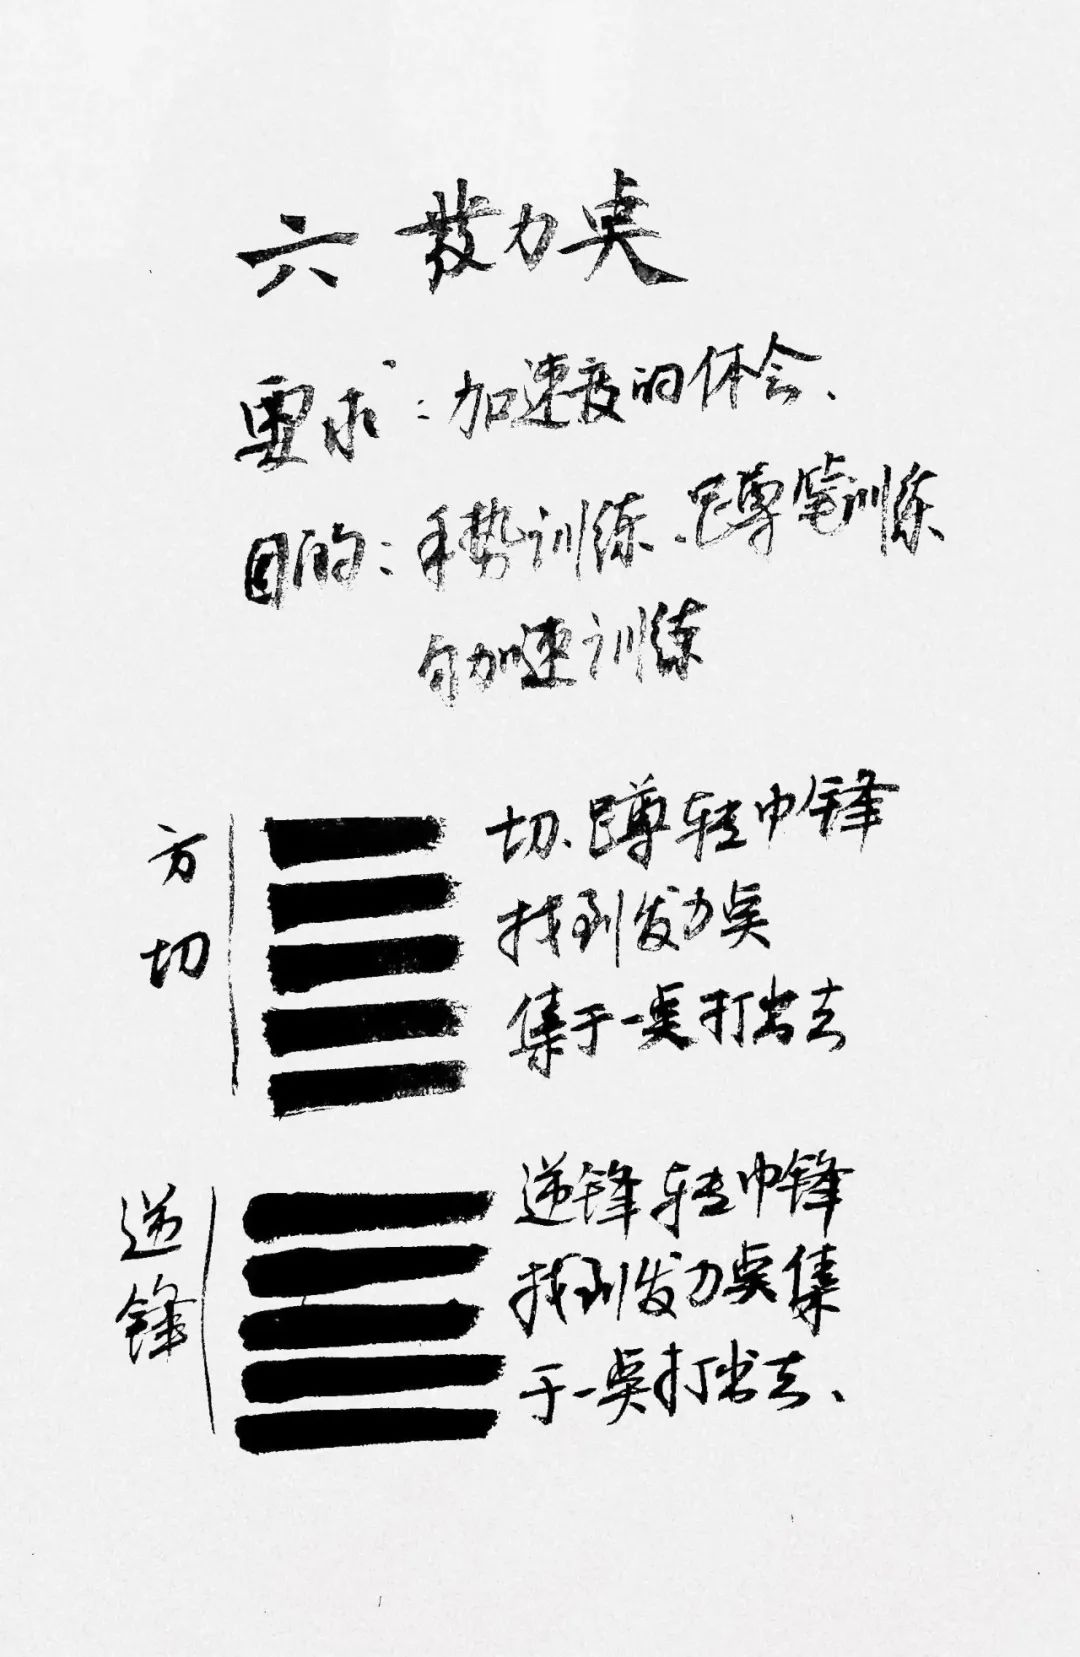 六 发力点
要求：加速度的体会、
目的：手势训练、蹲笔训练
匀加速训练
方切
切、蹲转中锋
找到发力点
集于一点打出去
逆锋
逆锋转中锋
找到发力点集
于一点打出去、